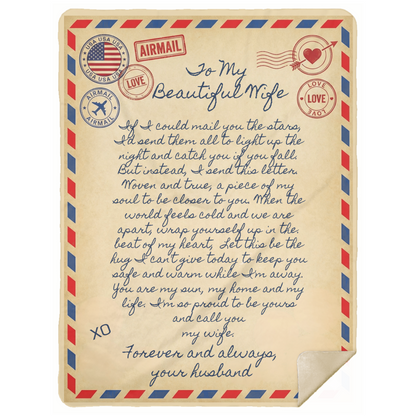 USA USA USA
USA USA USA
AIRMAIL
LOVE
AIRMAIL
AIRMAIL
LOVE
LOVE
To My
Beautiful Wife
If I could mail you the stars,
I'd send them all to light up the
night and catch you if you fall.
But instead, I send this letter.
Woven and true, a piece of my
soul to be closer to you. When the
world feels cold and we are
apart, wrap yourself up in the
beat of my heart, Let this be the
hug I can't give today to keep you
safe and warm while I'm away.
You are my sun, my home and my
life. I'm so proud to be yours
and call you
my wife.
XO
Forever and always,
your husband